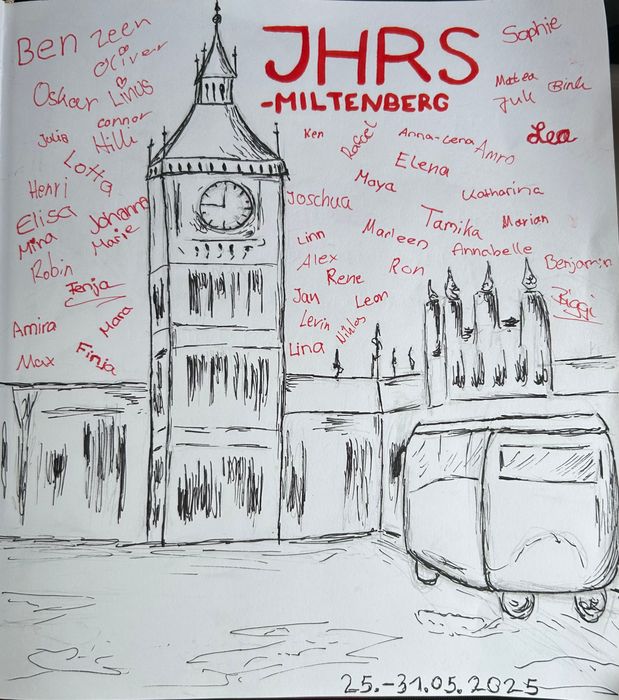 JHRS
-MILTENBERG
Ben
zeen
Oliver
Oskar
Linus
connor
Julia
Hilli
Lotta
Henri
Johanna
Elisa
Mina
Marie
Robin
Fenja
Amira
Mara
Max
Finja
Sophie
Mattea
Juli
Lea
Ken
Raffael
Anna-Lena
Amro
Elena
Maya
Katharina
Joschua
Tamika
Marian
Linn
Marleen
Annabelle
Alex
Ron
Benjamin
Rene
Jan
Leon
Biggi
Levin
Niklas
Lina
25.-31.05.2025